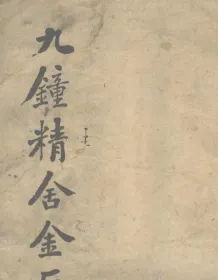 九鐘精舍金石